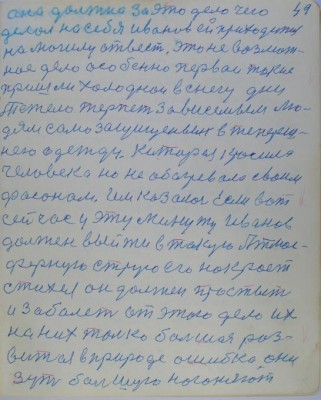 она должна за это дело чего
делол на себя иванов ей приходити
на могилу ответ. Это не возмож-
ное дело особенно первои такие
пришли холоднои в снегу дни
Тежело терпет зависемым лю-
дям само защищеных в тепереш-
него одежду. Которы красила
человека но не обогревала своим
фасоном. Им казаков Если вот
сейчас у эту минуту иванов
должен выйти в такую Атмос-
ферную струю его накроет
стихея он должен простыт
и заболет от этого дело их
на них только болшая раз-
вится в природе ошибка они
Зут болшую ногоняют
49